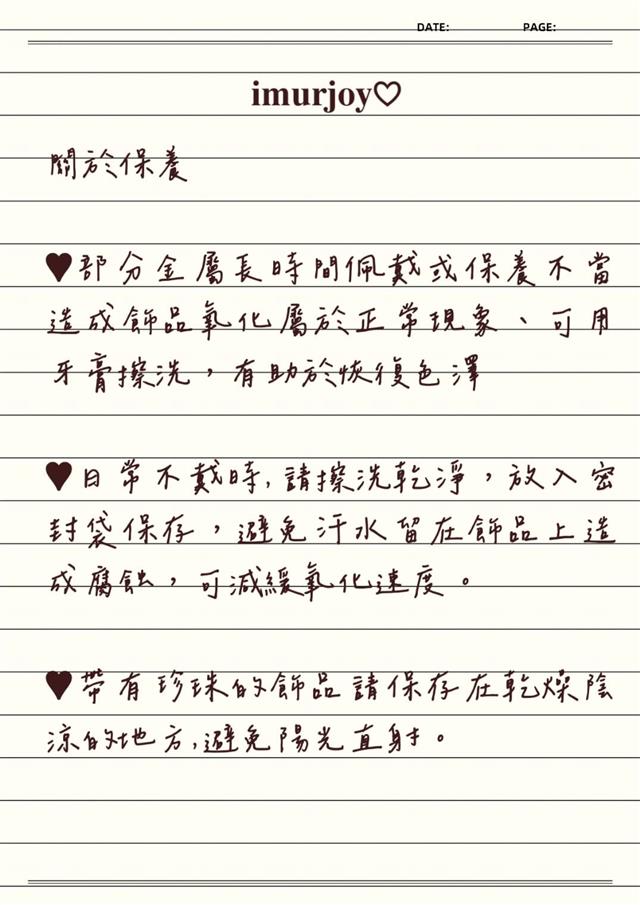 DATE: PAGE:
imurjoy♡
關於保養
♥部分金屬長時間佩戴或保養不當
造成飾品氧化屬於正常現象、可用
牙膏擦洗，有助於恢復色澤
♥日常不戴時，請擦洗乾淨，放入密
封袋保存，避免汗水留在飾品上造
成腐蝕，可減緩氧化速度。
♥帶有珍珠的飾品請保存在乾燥陰
涼的地方，避免陽光直射。